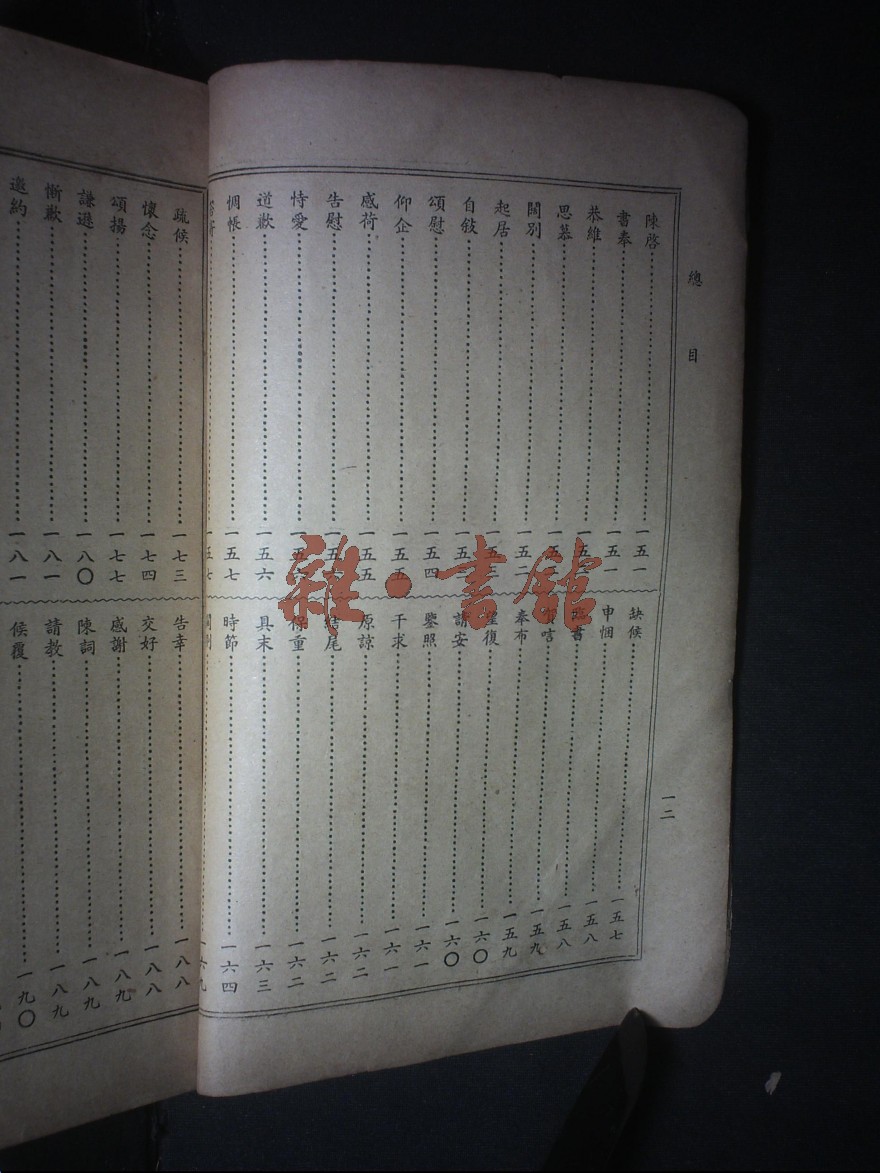 總目
一二
陳啓 一五一
書奉 一五一
恭維
思慕
闊別 一五二
起居
自敍
頌慰 一五四
仰企 一五五
感荷 一五五
告慰
恃愛
道歉 一五六
惆悵 一五七
一五七
缺候 一五七
申悃 一五八
臨書 一五八
一五九
奉布 一五九
一六〇
請安 一六〇
鑒照 一六一
干求 一六一
原諒 一六二
結尾 一六二
保重 一六二
具末 一六三
時節 一六四
一六九
疏候 一七三
懷念 一七四
頌揚 一七七
謙遜 一八〇
慚歉 一八一
邀約 一八一
告幸 一八八
交好 一八八
感謝 一八九
陳詞 一八九
請教 一八九
候覆 一九〇
雜·書館